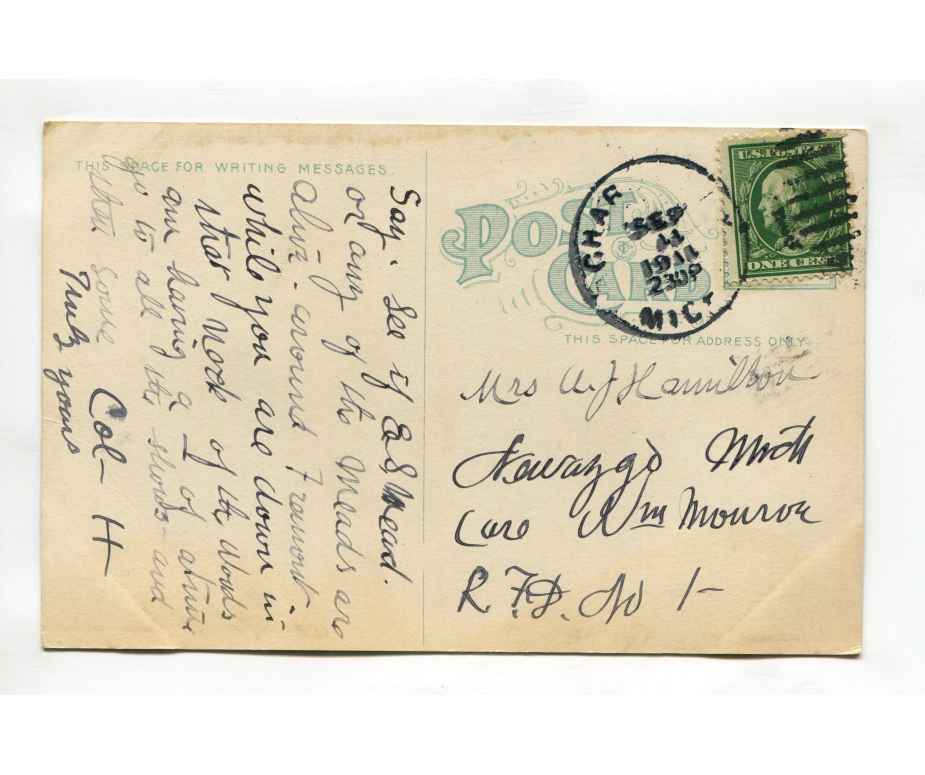 THIS SPACE FOR WRITING MESSAGES.
Say. See if E S Mead.
or any of the Meads are
alive around Fremont
while you are down in
that neck of the woods
am having a of a time
go to all the shows and
then some
Truly yours
Col - H
POST CARD
CHAR
SEP
11
1911
230P
MICH
U.S. POSTAGE
ONE CENT
THIS SPACE FOR ADDRESS ONLY.
Mrs A J Hamilton
Newaygo Mich
Care Wm Monroe
R.F.D. No 1-